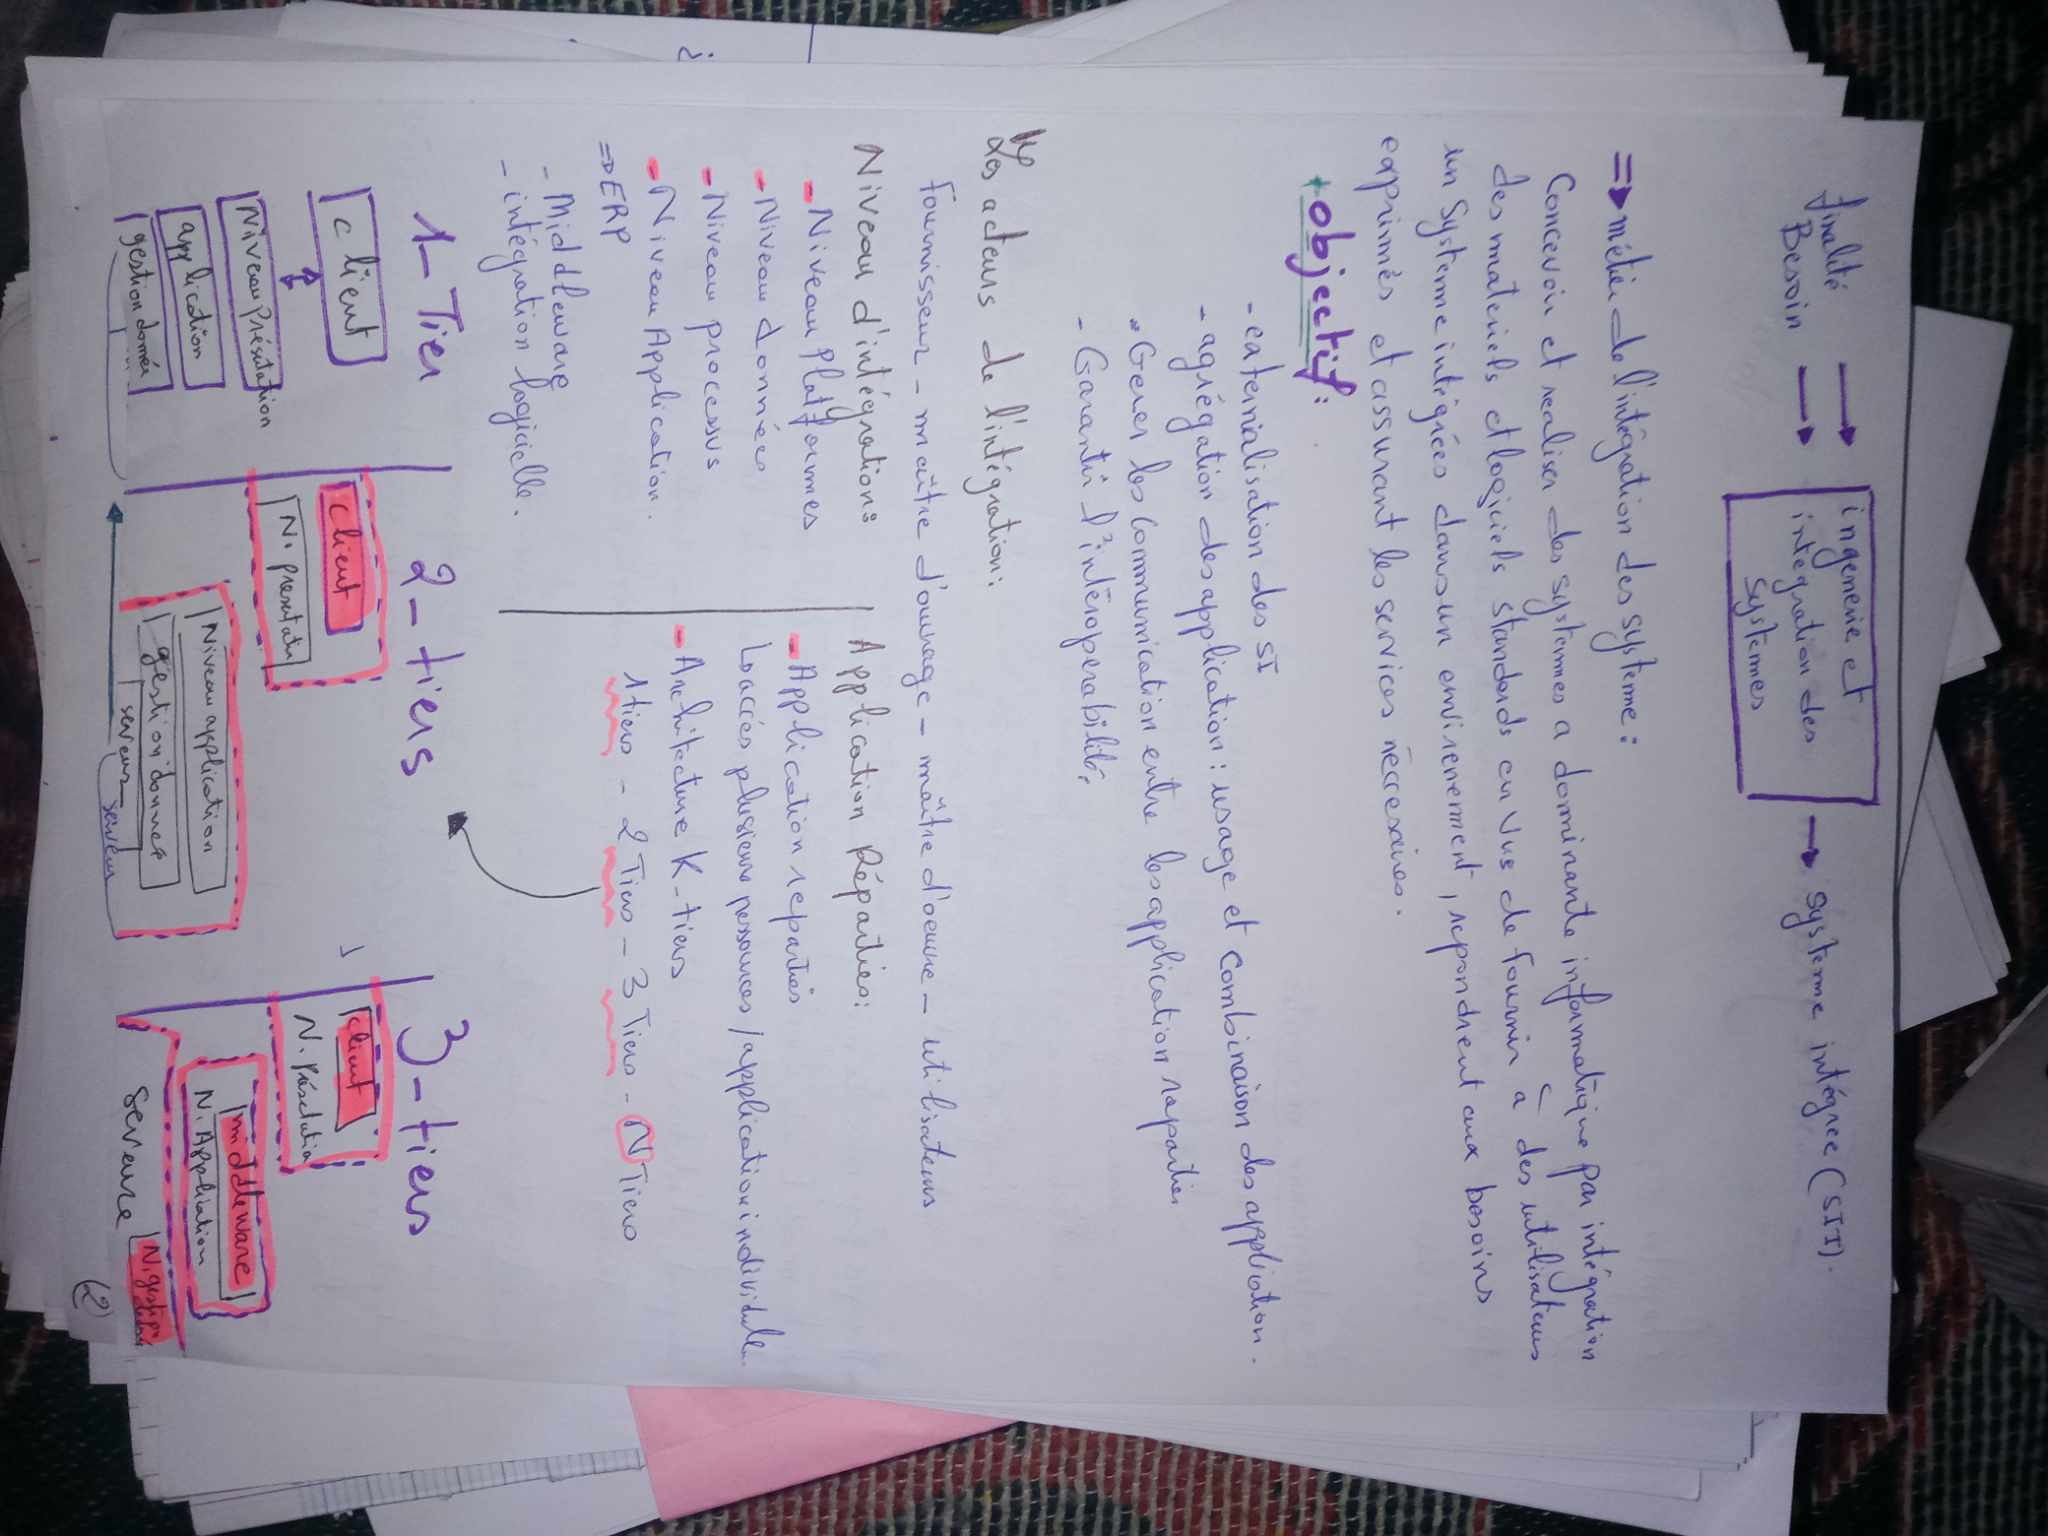 finalité
Besoin
ingenerie et
integration des
systemes
systeme intégree (SII).
=> métier de l'intégration des systeme :
Concevoir et realiser des systemes a dominante informatique par intégration
des materiels et logiciels standards en vus de fournir à des utilisateurs
un Systeme intégrées dans un envirenement, repondrent aux besoins
exprimés et assurant les services neccesaires.
+ objectif :
- externalisation des SI
- agrégation des application : usage et combinaison des application.
- Gerer les communication entre les application repartie
- Garantir l'intéroperabilité.
Les acteurs de l'intégration :
Fournisseur - maître d'ouvrage - maître d'oeuvre - utilisateurs
Niveau d'intégration :
- Niveau Platformes
- Niveau données
- Niveau processus
- Niveau Application.
=> ERP
- Middleware
- intégration logicielle.
Application Réparties :
- Application reparties
↳ accés plusieurs ressources / application individuelle
- Architecture K-tiers
1 tiers - 2 Tiers - 3 Tiers - N Tiers
1-Tier
client
Niveau Présutation
application
gestion donnée
2-tiers
client
N. presentati
Niveau application
gestion donnee
serveur
serveur
3-tiers
client
N. Présetation
middleware
N. Application
serveure
N. gestion
(2)